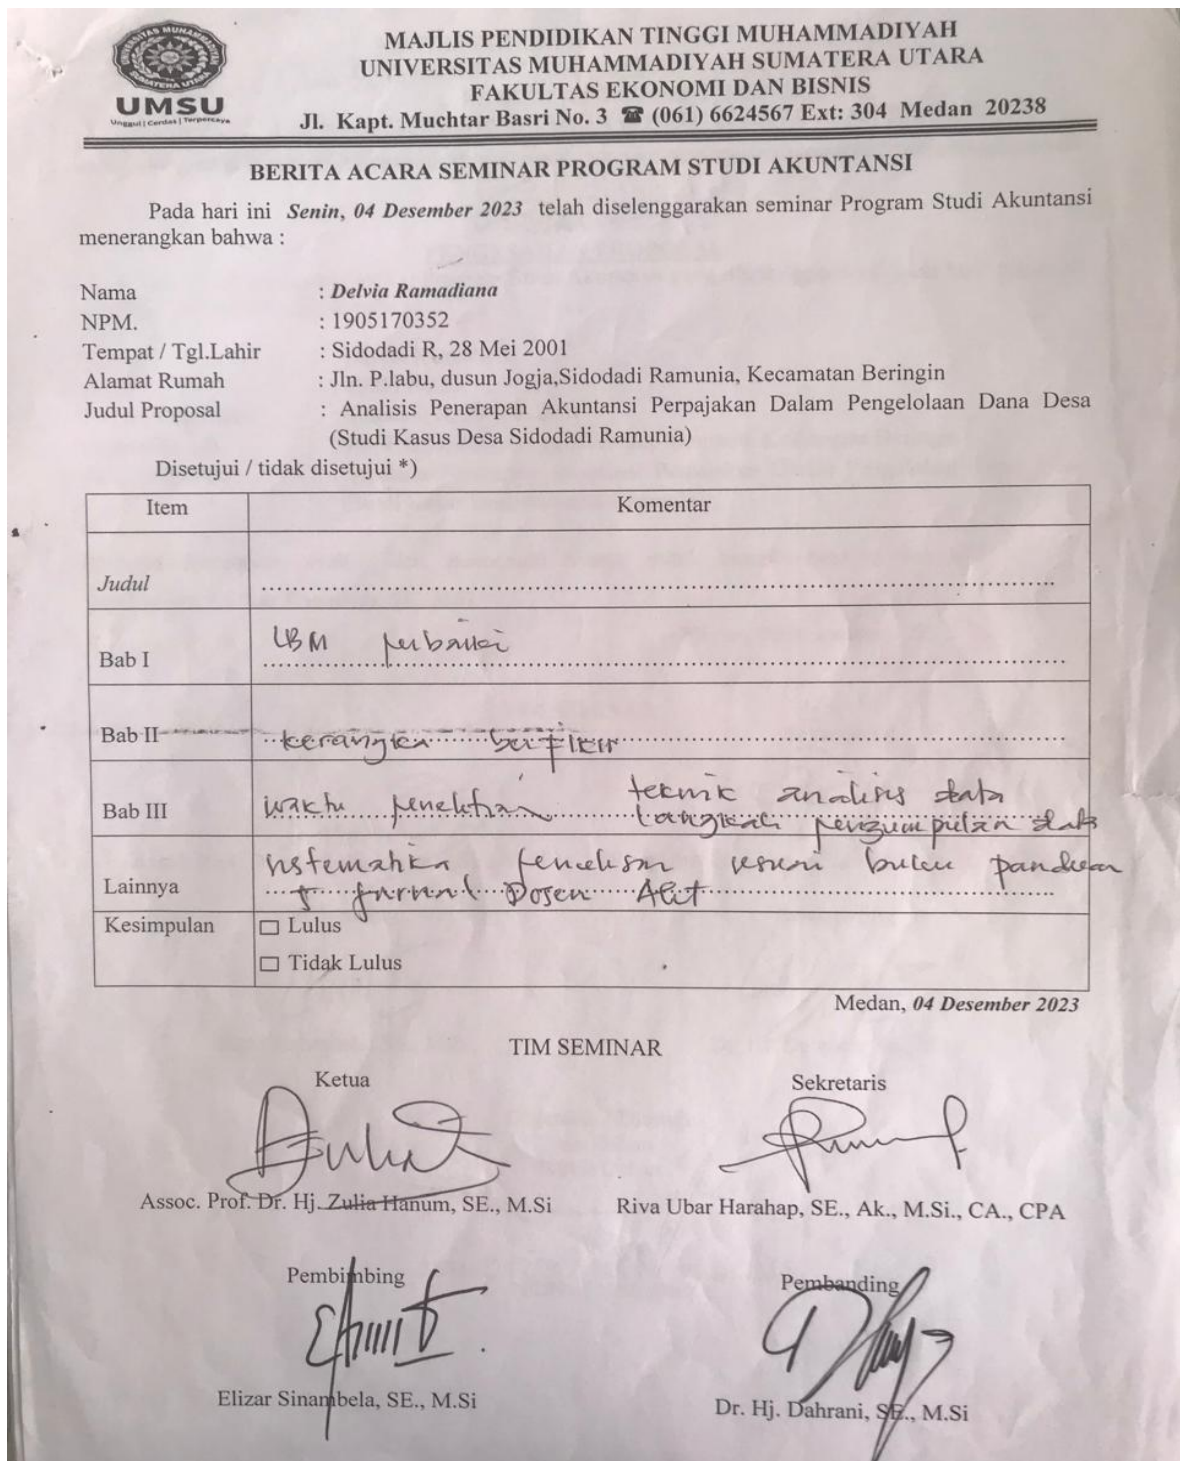 UNIVERSITAS MUHAMMADIYAH
SUMATERA UTARA
UMSU
Unggul | Cerdas | Terpercaya
MAJLIS PENDIDIKAN TINGGI MUHAMMADIYAH
UNIVERSITAS MUHAMMADIYAH SUMATERA UTARA
FAKULTAS EKONOMI DAN BISNIS
Jl. Kapt. Muchtar Basri No. 3 ☎ (061) 6624567 Ext: 304 Medan 20238
BERITA ACARA SEMINAR PROGRAM STUDI AKUNTANSI
Pada hari ini Senin, 04 Desember 2023 telah diselenggarakan seminar Program Studi Akuntansi
menerangkan bahwa :
Nama : Delvia Ramadiana
NPM. : 1905170352
Tempat / Tgl.Lahir : Sidodadi R, 28 Mei 2001
Alamat Rumah : Jln. P.labu, dusun Jogja,Sidodadi Ramunia, Kecamatan Beringin
Judul Proposal : Analisis Penerapan Akuntansi Perpajakan Dalam Pengelolaan Dana Desa
(Studi Kasus Desa Sidodadi Ramunia)
Disetujui / tidak disetujui *)
Item Komentar
Judul
Bab I LBM perbaiki
Bab II kerangka berfikir
teknik analisis data
Bab III waktu penelitian
pengumpulan data
sistematika penulisan sesuai buku panduan
Lainnya
jurnal Dosen
Kesimpulan Lulus
Tidak Lulus
Medan, 04 Desember 2023
TIM SEMINAR
Ketua Sekretaris
Assoc. Prof. Dr. Hj. Zulia Hanum, SE., M.Si Riva Ubar Harahap, SE., Ak., M.Si., CA., CPA
Pembimbing Pembanding
Elizar Sinambela, SE., M.Si Dr. Hj. Dahrani, SE., M.Si